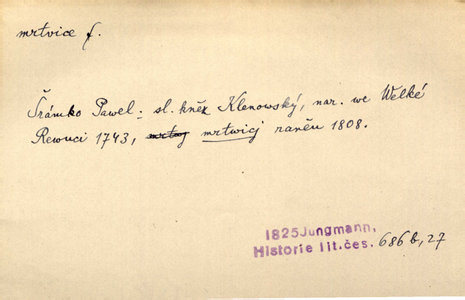 mrtvice f.
Šrámko Pawel: sl. kněz Klenowský, nar. we Welké
Rewuci 1743, mrtwj mrtwicj raněn 1808.
1825 Jungmann,
Historie lit. čes. 686 b, 27